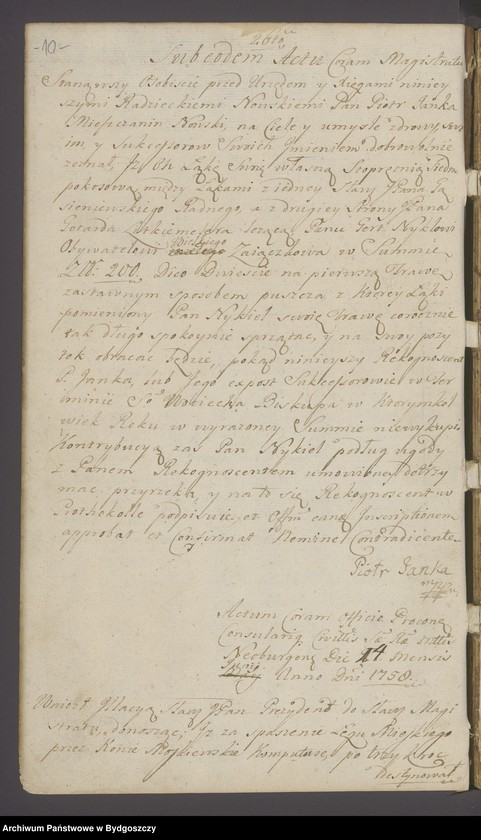 -10-
Sub eodem Actu Coram Magistratu
Stanąwszy Osobiście przed Urzędem y Xięgami niniey
szymi Radzieckiemi Nowskiemi Pan Piotr Janka
Mieszczanin Nowski, na Ciele y umyśle zdrowy, swo
im y Sukcessorow Swoich Imieniem dobrowolnie
zeznał, Iż On Łąkę Swoię własną
pokosową między Łąkami z iedney Strony JPana Ja
sieniewskiego Radnego, a z drugiey Strony JPana
Gotarda leżącą Panu Gert Nyklowi
Obywatelowi Wielkiego Zaiączkowa w Summie
Złł. 200. Dico Dwieście na pierwszą Trawę
zastawnym sposobem puszcza z ktorey Łąki
pomieniony Pan Nykiel swoię Trawę corocznie
tak długo spokoynie sprzątać, y na swoy poży
tek obracać będzie, pokąd ninieyszy Rekognoscent
P. Janka, lub Jego expost Sukcessorowie w Ter
minie So Woyciecha Biskupa w ktorymkol
wiek Roku w wyrażoney Summie niewykupi
Kontrybucyą zaś Pan Nykiel podług ugody
z Panem Rekognoscentem umowioney dotrzy
mać przyrzeka, y na to się Rekognoscent w
Prothokole podpisuie, et Offm eandem Inscriptionem
approbat et Confirmat Nemine Contradicente
Piotr Janka
Actum Coram Officio
Consulari Civitatis
Neoburgen Die 14 Mensis
Anno Dni 1758.
Wniosł Illacyą Sław JPan Prezydent do Sław Magi
stratu, donosząc; Iż za spaszenie Łęgu Mieyskiego
przez Konie Moskiewskie Komputuie, po trzy kroć